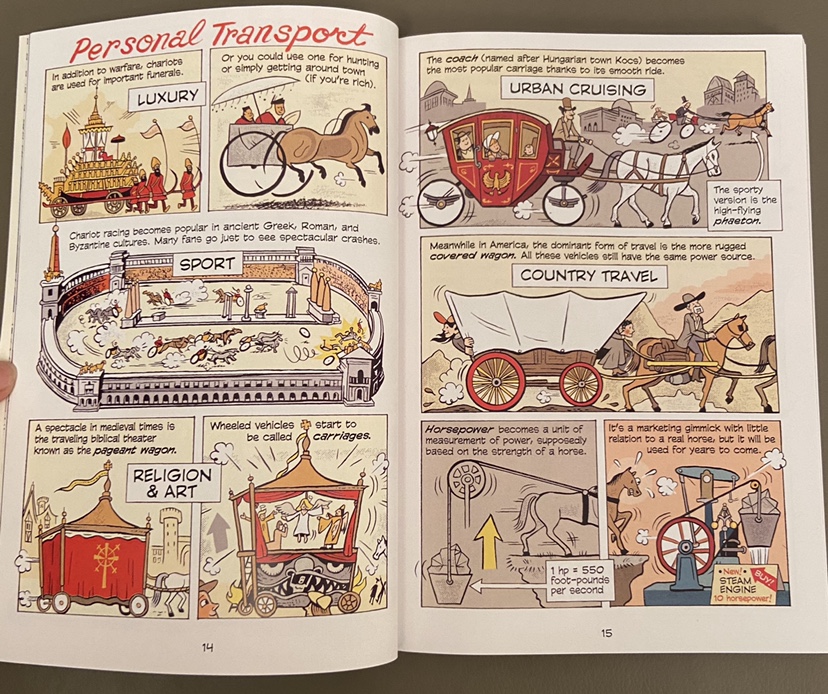 Personal Transport
In addition to warfare, chariots
are used for important funerals.
LUXURY
Or you could use one for hunting
or simply getting around town
(if you're rich).
Chariot racing becomes popular in ancient Greek, Roman, and
Byzantine cultures. Many fans go just to see spectacular crashes.
SPORT
A spectacle in medieval times is
the traveling biblical theater
known as the pageant wagon.
RELIGION
& ART
Wheeled vehicles start to
be called carriages.
14
The coach (named after Hungarian town Kocs) becomes
the most popular carriage thanks to its smooth ride.
URBAN CRUISING
The sporty
version is the
high-flying
phaeton.
Meanwhile in America, the dominant form of travel is the more rugged
covered wagon. All these vehicles still have the same power source.
COUNTRY TRAVEL
Horsepower becomes a unit of
measurement of power, supposedly
based on the strength of a horse.
1 hp = 550
foot-pounds
per second
It's a marketing gimmick with little
relation to a real horse, but it will be
used for years to come.
• New! •
STEAM
ENGINE
10 horsepower!
BUY!
15